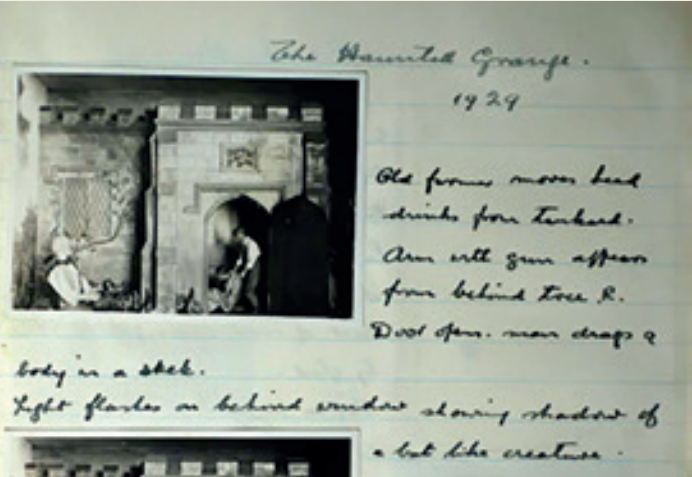 The Haunted Grange.
1929
Old farmer moves head
drinks from tankard.
Arm with gun appears
from behind tree R.
Door opens. man drags a
body in a sack.
Light flashes on behind window showing shadow of
a bat like creature.